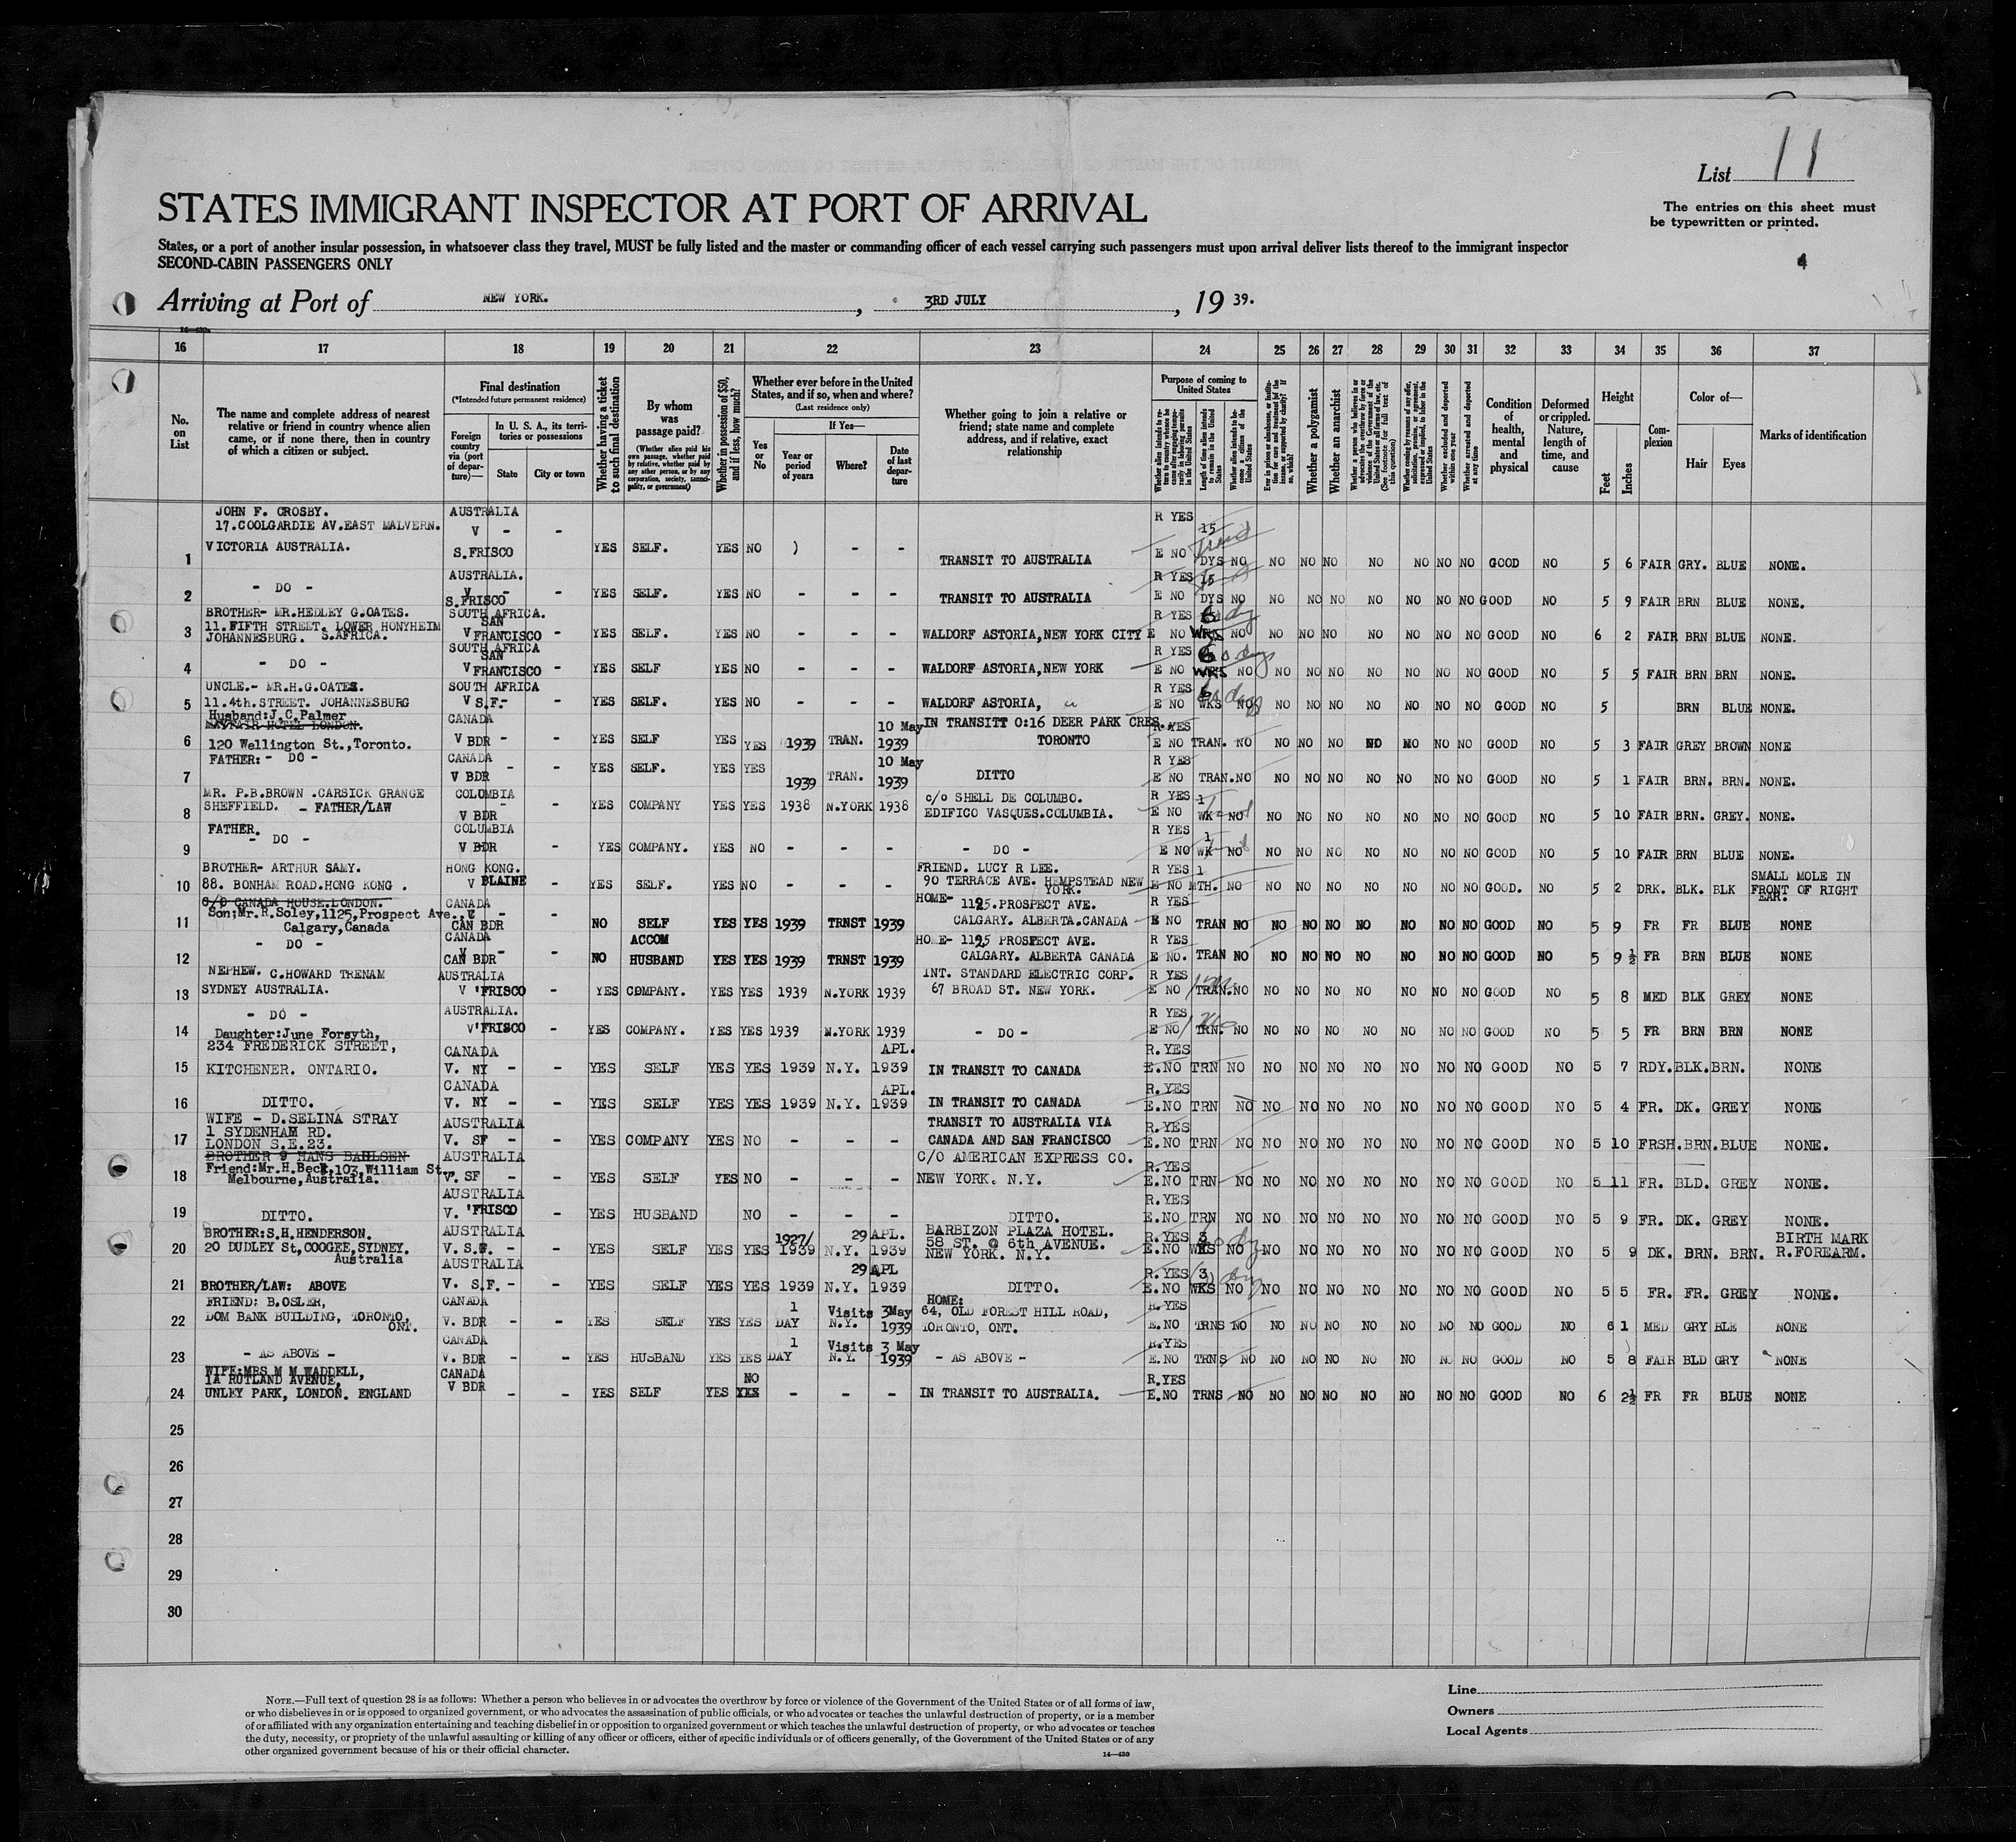 List 11
STATES IMMIGRANT INSPECTOR AT PORT OF ARRIVAL
The entries on this sheet must
be typewritten or printed.
States, or a port of another insular possession, in whatsoever class they travel, MUST be fully listed and the master or commanding officer of each vessel carrying such passengers must upon arrival deliver lists thereof to the immigrant inspector
SECOND-CABIN PASSENGERS ONLY
4
Arriving at Port of NEW YORK. , 3RD JULY , 19 39.
16 17 18 19 20 21 22 23 24 25 26 27 28 29 30 31 32 33 34 35 36 37
No. on List
The name and complete address of nearest relative or friend in country whence alien came, or if none there, then in country of which a citizen or subject.
Final destination
(*Intended future permanent residence)
Foreign country via (port of departure)—
In U. S. A., its territories or possessions
State
City or town
Whether having a ticket to such final destination
By whom was passage paid?
(Whether alien paid his own passage, whether paid by relative, whether paid by any other person, or by any corporation, society, municipality, or government)
Whether in possession of $50, and if less, how much?
Whether ever before in the United States, and if so, when and where?
(Last residence only)
Yes or No
If Yes—
Year or period of years
Where?
Date of last departure
Whether going to join a relative or friend; state name and complete address, and if relative, exact relationship
Purpose of coming to United States
Length of time alien intends to remain in the United States
Whether alien intends to become a citizen of the United States
Whether a polygamist
Whether an anarchist
Whether excluded and deported within one year
Whether arrested and deported at any time
Condition of health, mental and physical
Deformed or crippled. Nature, length of time, and cause
Height
Feet
Inches
Complexion
Color of—
Hair
Eyes
Marks of identification
JOHN F. CROSBY. AUSTRALIA R YES 15
17.COOLGARDIE AV.EAST MALVERN. V - -
1 VICTORIA AUSTRALIA. S.FRISCO YES SELF. YES NO ) - - TRANSIT TO AUSTRALIA E NO DYS NO NO NO NO NO NO NO NO GOOD NO 5 6 FAIR GRY. BLUE NONE.
AUSTRALIA. R YES 15
2 - DO - V - - S.FRISCO YES SELF. YES NO - - - TRANSIT TO AUSTRALIA E NO DYS NO NO NO NO NO NO NO NO GOOD NO 5 9 FAIR BRN BLUE NONE.
BROTHER- MR.HEDLEY G.OATES. SOUTH AFRICA. R YES
11.FIFTH STREET. LOWER HONYHEIM SAN
3 JOHANNESBURG. S.AFRICA. V FRANCISCO - YES SELF. YES NO - - - WALDORF ASTORIA,NEW YORK CITY E NO WKS NO NO NO NO NO NO NO NO GOOD NO 6 2 FAIR BRN BLUE NONE.
SOUTH AFRICA R YES
4 - DO - SAN V FRANCISCO - YES SELF YES NO - - - WALDORF ASTORIA,NEW YORK E NO WKS NO NO NO NO NO NO NO NO GOOD NO 5 5 FAIR BRN BRN NONE.
UNCLE.- MR.H.G.OATES. SOUTH AFRICA R YES 6
5 11.4th.STREET. JOHANNESBURG V S.F.- - YES SELF. YES NO - - - WALDORF ASTORIA, E NO WKS NO NO NO NO NO NO NO NO GOOD NO 5 BRN BLUE NONE.
Husband:J.C.Palmer CANADA 10 May IN TRANSITT O:16 DEER PARK CRES. R YES
MAYFAIR HOTEL LONDON.
6 120 Wellington St.,Toronto. V BDR - - YES SELF YES YES 1939 TRAN. 1939 TORONTO E NO TRAN. NO NO NO NO NO NO NO NO GOOD NO 5 3 FAIR GREY BROWN NONE
7 FATHER:- DO - CANADA V BDR - - YES SELF. YES YES 1939 TRAN. 10 May 1939 DITTO R YES E NO TRAN.NO NO NO NO NO NO NO NO GOOD NO 5 1 FAIR BRN. BRN. NONE.
MR. P.B.BROWN .CARSICK GRANGE COLUMBIA c/o SHELL DE COLUMBO. R YES 1
8 SHEFFIELD. - FATHER/LAW V BDR - - YES COMPANY YES YES 1938 N.YORK 1938 EDIFICO VASQUES.COLUMBIA. E NO WK NO NO NO NO NO NO NO NO GOOD NO 5 10 FAIR BRN. GREY. NONE.
FATHER. COLUMBIA R YES 1
9 - DO - V BDR - YES COMPANY. YES NO - - - - DO - E NO WK NO NO NO NO NO NO NO NO GOOD NO 5 10 FAIR BRN BLUE NONE.
BROTHER- ARTHUR SAMY. HONG KONG. FRIEND. LUCY R LEE. R YES 1 SMALL MOLE IN
10 88. BONHAM ROAD.HONG KONG . V BLAINE - YES SELF. YES NO - - - 90 TERRACE AVE. HEMPSTEAD NEW YORK. E NO MTH. NO NO NO NO NO NO NO NO GOOD. NO 5 2 DRK. BLK. BLK FRONT OF RIGHT EAR.
C/O CANADA HOUSE.LONDON. CANADA HOME- 1125.PROSPECT AVE. R YES
Son;Mr.R.Soley,1125,Prospect Ave.,
11 Calgary,Canada CAN BDR - NO SELF YES YES 1939 TRNST 1939 CALGARY. ALBERTA.CANADA E NO TRAN NO NO NO NO NO NO NO NO GOOD NO 5 9 FR FR BLUE NONE
12 - DO - CANADA V - - CAN BDR NO ACCOM HUSBAND YES YES 1939 TRNST 1939 HOME- 1125 PROSPECT AVE. CALGARY. ALBERTA CANADA R YES E NO. TRAN NO NO NO NO NO NO NO NO GOOD NO 5 9 ½ FR BRN BLUE NONE
NEPHEW. C.HOWARD TRENAM AUSTRALIA INT. STANDARD ELECTRIC CORP. R YES
13 SYDNEY AUSTRALIA. V 'FRISCO - YES COMPANY. YES YES 1939 N.YORK 1939 67 BROAD ST. NEW YORK. E NO TRAN.NO NO NO NO NO NO NO NO GOOD NO 5 8 MED BLK GREY NONE
- DO - AUSTRALIA. R YES
14 Daughter:June Forsyth, V'FRISCO - YES COMPANY. YES YES 1939 N.YORK 1939 - DO - E NO TRN. NO NO NO NO NO NO NO NO GOOD NO 5 5 FR BRN BRN NONE
234 FREDERICK STREET, CANADA APL. R.YES
15 KITCHENER. ONTARIO. V. NY - - YES SELF YES YES 1939 N.Y. 1939 IN TRANSIT TO CANADA E.NO TRN NO NO NO NO NO NO NO NO GOOD NO 5 7 RDY.BLK.BRN. NONE
CANADA APL. R.YES
16 DITTO. V. NY - - YES SELF YES YES 1939 N.Y. 1939 IN TRANSIT TO CANADA E.NO TRN NO NO NO NO NO NO NO NO GOOD NO 5 4 FR. DK. GREY NONE
WIFE - D.SELINA STRAY AUSTRALIA TRANSIT TO AUSTRALIA VIA R.YES
1 SYDENHAM RD.
17 LONDON S.E.23. V. SF - - YES COMPANY YES NO - - - CANADA AND SAN FRANCISCO E.NO TRN NO NO NO NO NO NO NO NO GOOD NO 5 10 FRSH.BRN.BLUE NONE.
BROTHER 9 HANS BAHLSEN AUSTRALIA C/O AMERICAN EXPRESS CO. R.YES
Friend:Mr.H.Beck,103,William St.,
18 Melbourne,Australia. V. SF - - YES SELF YES NO - - - NEW YORK. N.Y. E.NO TRN NO NO NO NO NO NO NO NO GOOD NO 5 11 FR. BLD. GREY NONE.
AUSTRALIA R.YES
19 DITTO. V. 'FRISCO - YES HUSBAND NO - - - DITTO. E.NO TRN NO NO NO NO NO NO NO NO GOOD NO 5 9 FR. DK. GREY NONE.
BROTHER:S.H.HENDERSON. AUSTRALIA 1927/ 29 APL. BARBIZON PLAZA HOTEL. R.YES 3 BIRTH MARK
20 20 DUDLEY St,COOGEE,SYDNEY. V. S.F. - - YES SELF YES YES 1939 N.Y. 1939 58 ST. @ 6th AVENUE. E.NO WKS NO NO NO NO NO NO NO NO GOOD NO 5 9 DK. BRN. BRN. R.FOREARM.
Australia NEW YORK. N.Y.
AUSTRALIA 29 APL R.YES 3
21 BROTHER/LAW: ABOVE V. S.F. - - YES SELF YES YES 1939 N.Y. 1939 DITTO. E.NO WKS NO NO NO NO NO NO NO NO GOOD NO 5 5 FR. FR. GREY NONE.
FRIEND: B.OSLER, CANADA 1 Visits 3May HOME: R.YES
22 DOM BANK BUILDING, TORONTO, ONT. V. BDR - - YES SELF YES YES DAY N.Y. 1939 64, OLD FOREST HILL ROAD, TORONTO, ONT. E.NO TRNS NO NO NO NO NO NO NO NO GOOD NO 6 1 MED GRY BLE NONE
CANADA 1 Visits 3 May R.YES
23 - AS ABOVE - V. BDR - - YES HUSBAND YES YES DAY N.Y. 1939 - AS ABOVE - E.NO TRNS NO NO NO NO NO NO NO NO GOOD NO 5 8 FAIR BLD GRY NONE
WIFE:MRS M M WADDELL, CANADA NO R.YES
1A RUTLAND AVENUE, V BDR
24 UNLEY PARK, LONDON. ENGLAND - - YES SELF YES YES - - - IN TRANSIT TO AUSTRALIA. E.NO TRNS NO NO NO NO NO NO NO NO GOOD NO 6 2½ FR FR BLUE NONE
25
26
27
28
29
30
NOTE.—Full text of question 28 is as follows: Whether a person who believes in or advocates the overthrow by force or violence of the Government of the United States or of all forms of law,
or who disbelieves in or is opposed to organized government, or who advocates the assassination of public officials, or who advocates or teaches the unlawful destruction of property, or is a member
of or affiliated with any organization entertaining and teaching disbelief in or opposition to organized government or which teaches the unlawful destruction of property, or who advocates or teaches
the duty, necessity, or propriety of the unlawful assaulting or killing of any officer or officers, either of specific individuals or of officers generally, of the Government of the United States or of any
other organized government because of his or their official character.
14—450
Line
Owners
Local Agents